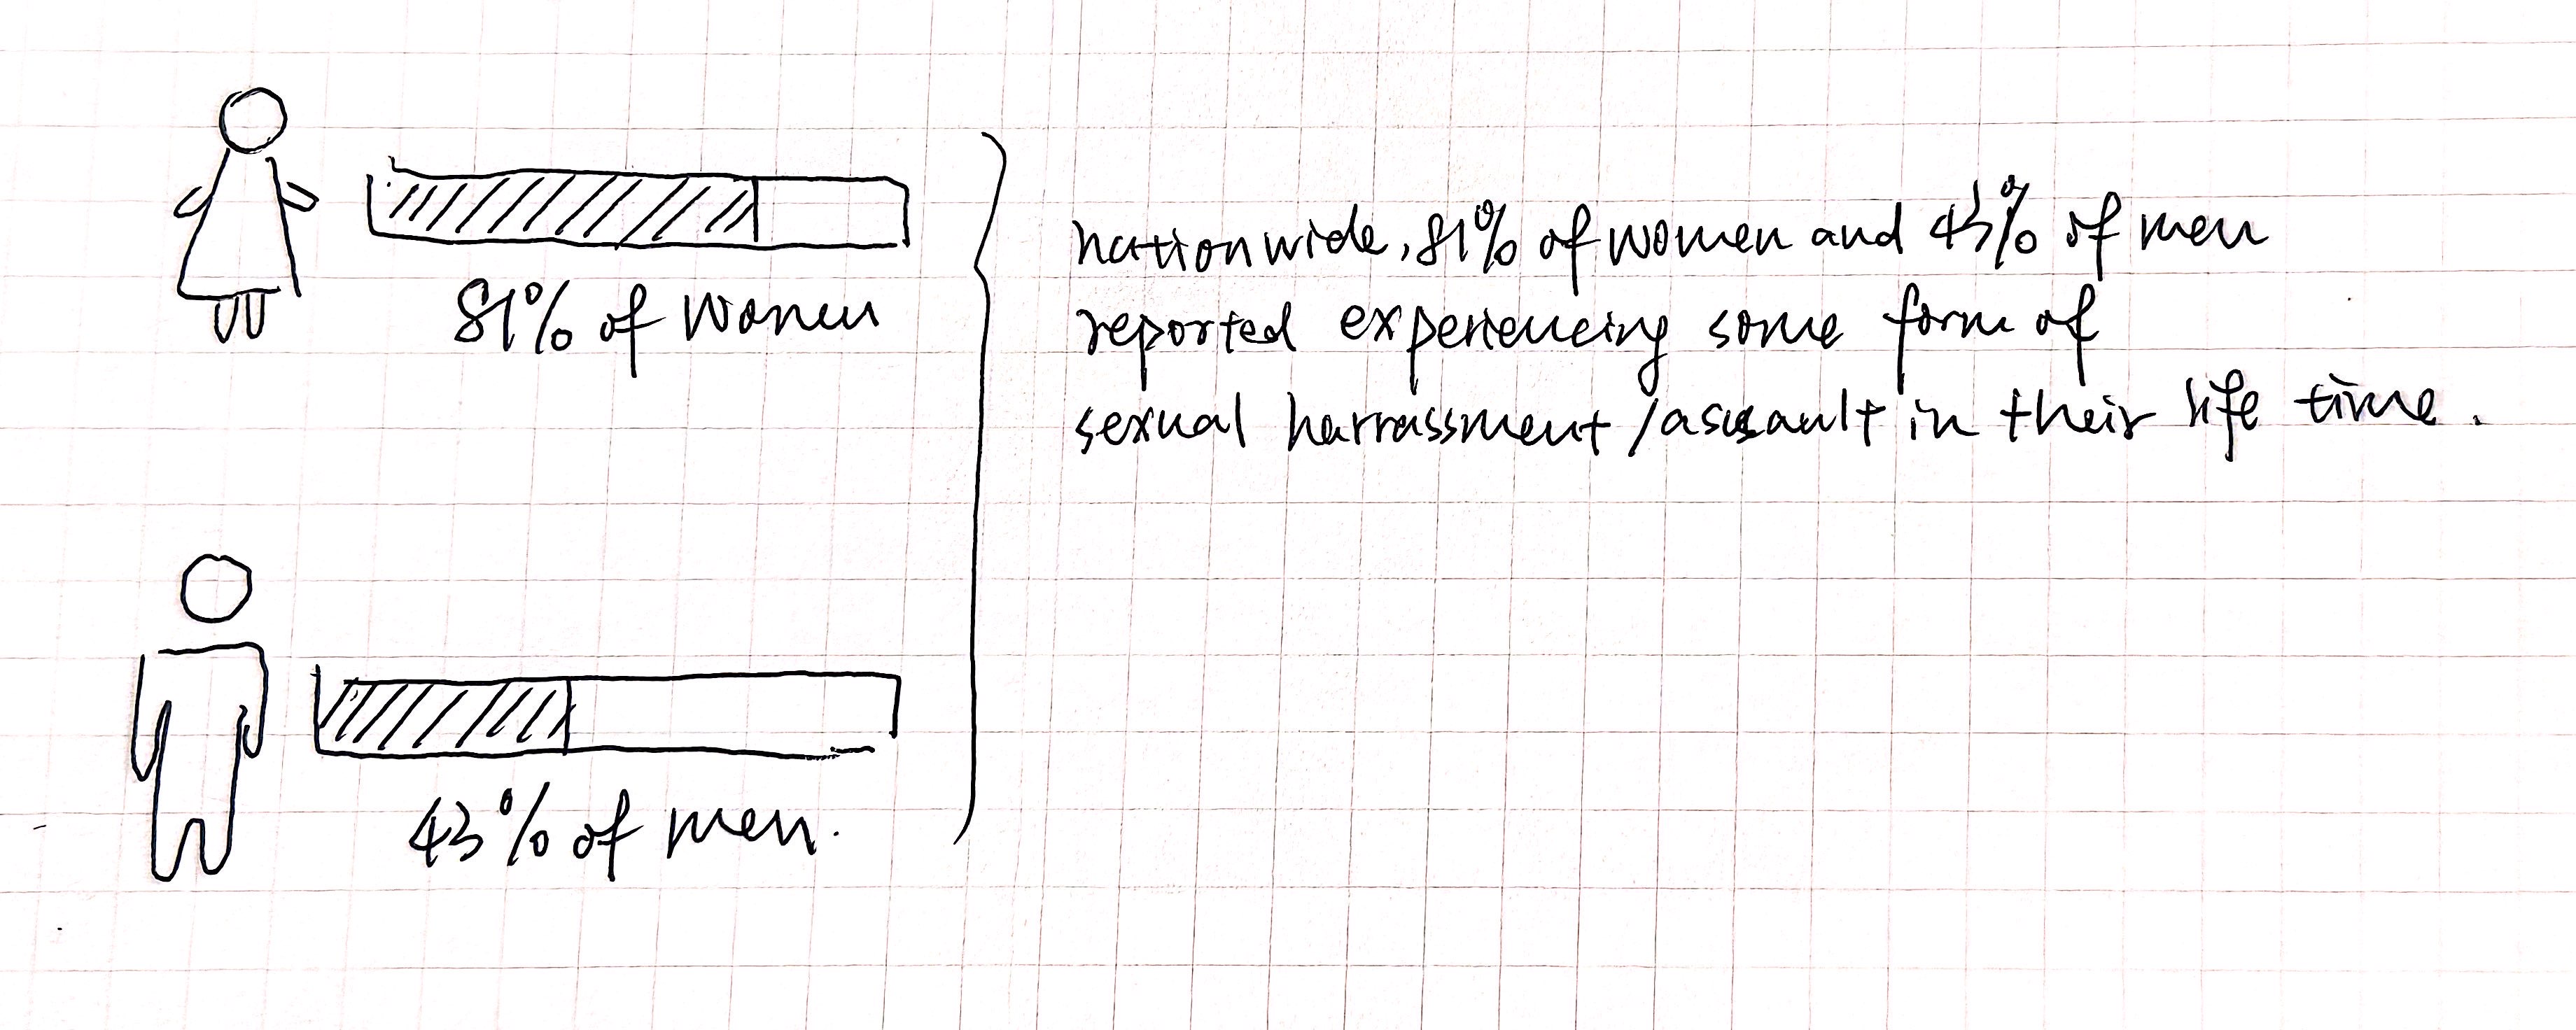 81% of women
43% of men.
nationwide, 81% of women and 43% of men
reported experiencing some form of
sexual harrassment /assault in their life time.